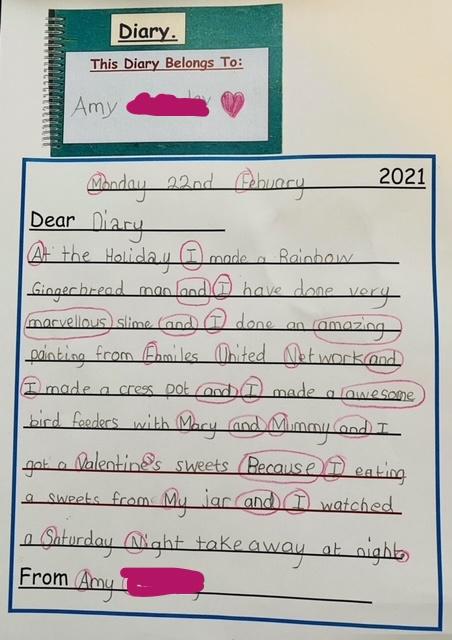 Diary.
This Diary Belongs To:
Amy
Monday 22nd Febuary 2021
Dear Diary
At the Holiday I made a Rainbow
Gingerbread man and I have done very
marvellous slime and I done an amazing
painting from Fbmiles United Network and
I made a cress pot and I made a awesome
bird feeders with Mary and Mummy and I
got a Valentine's sweets Because I eating
a sweets from My jar and I watched
a Saturday Night take away at night.
From Amy